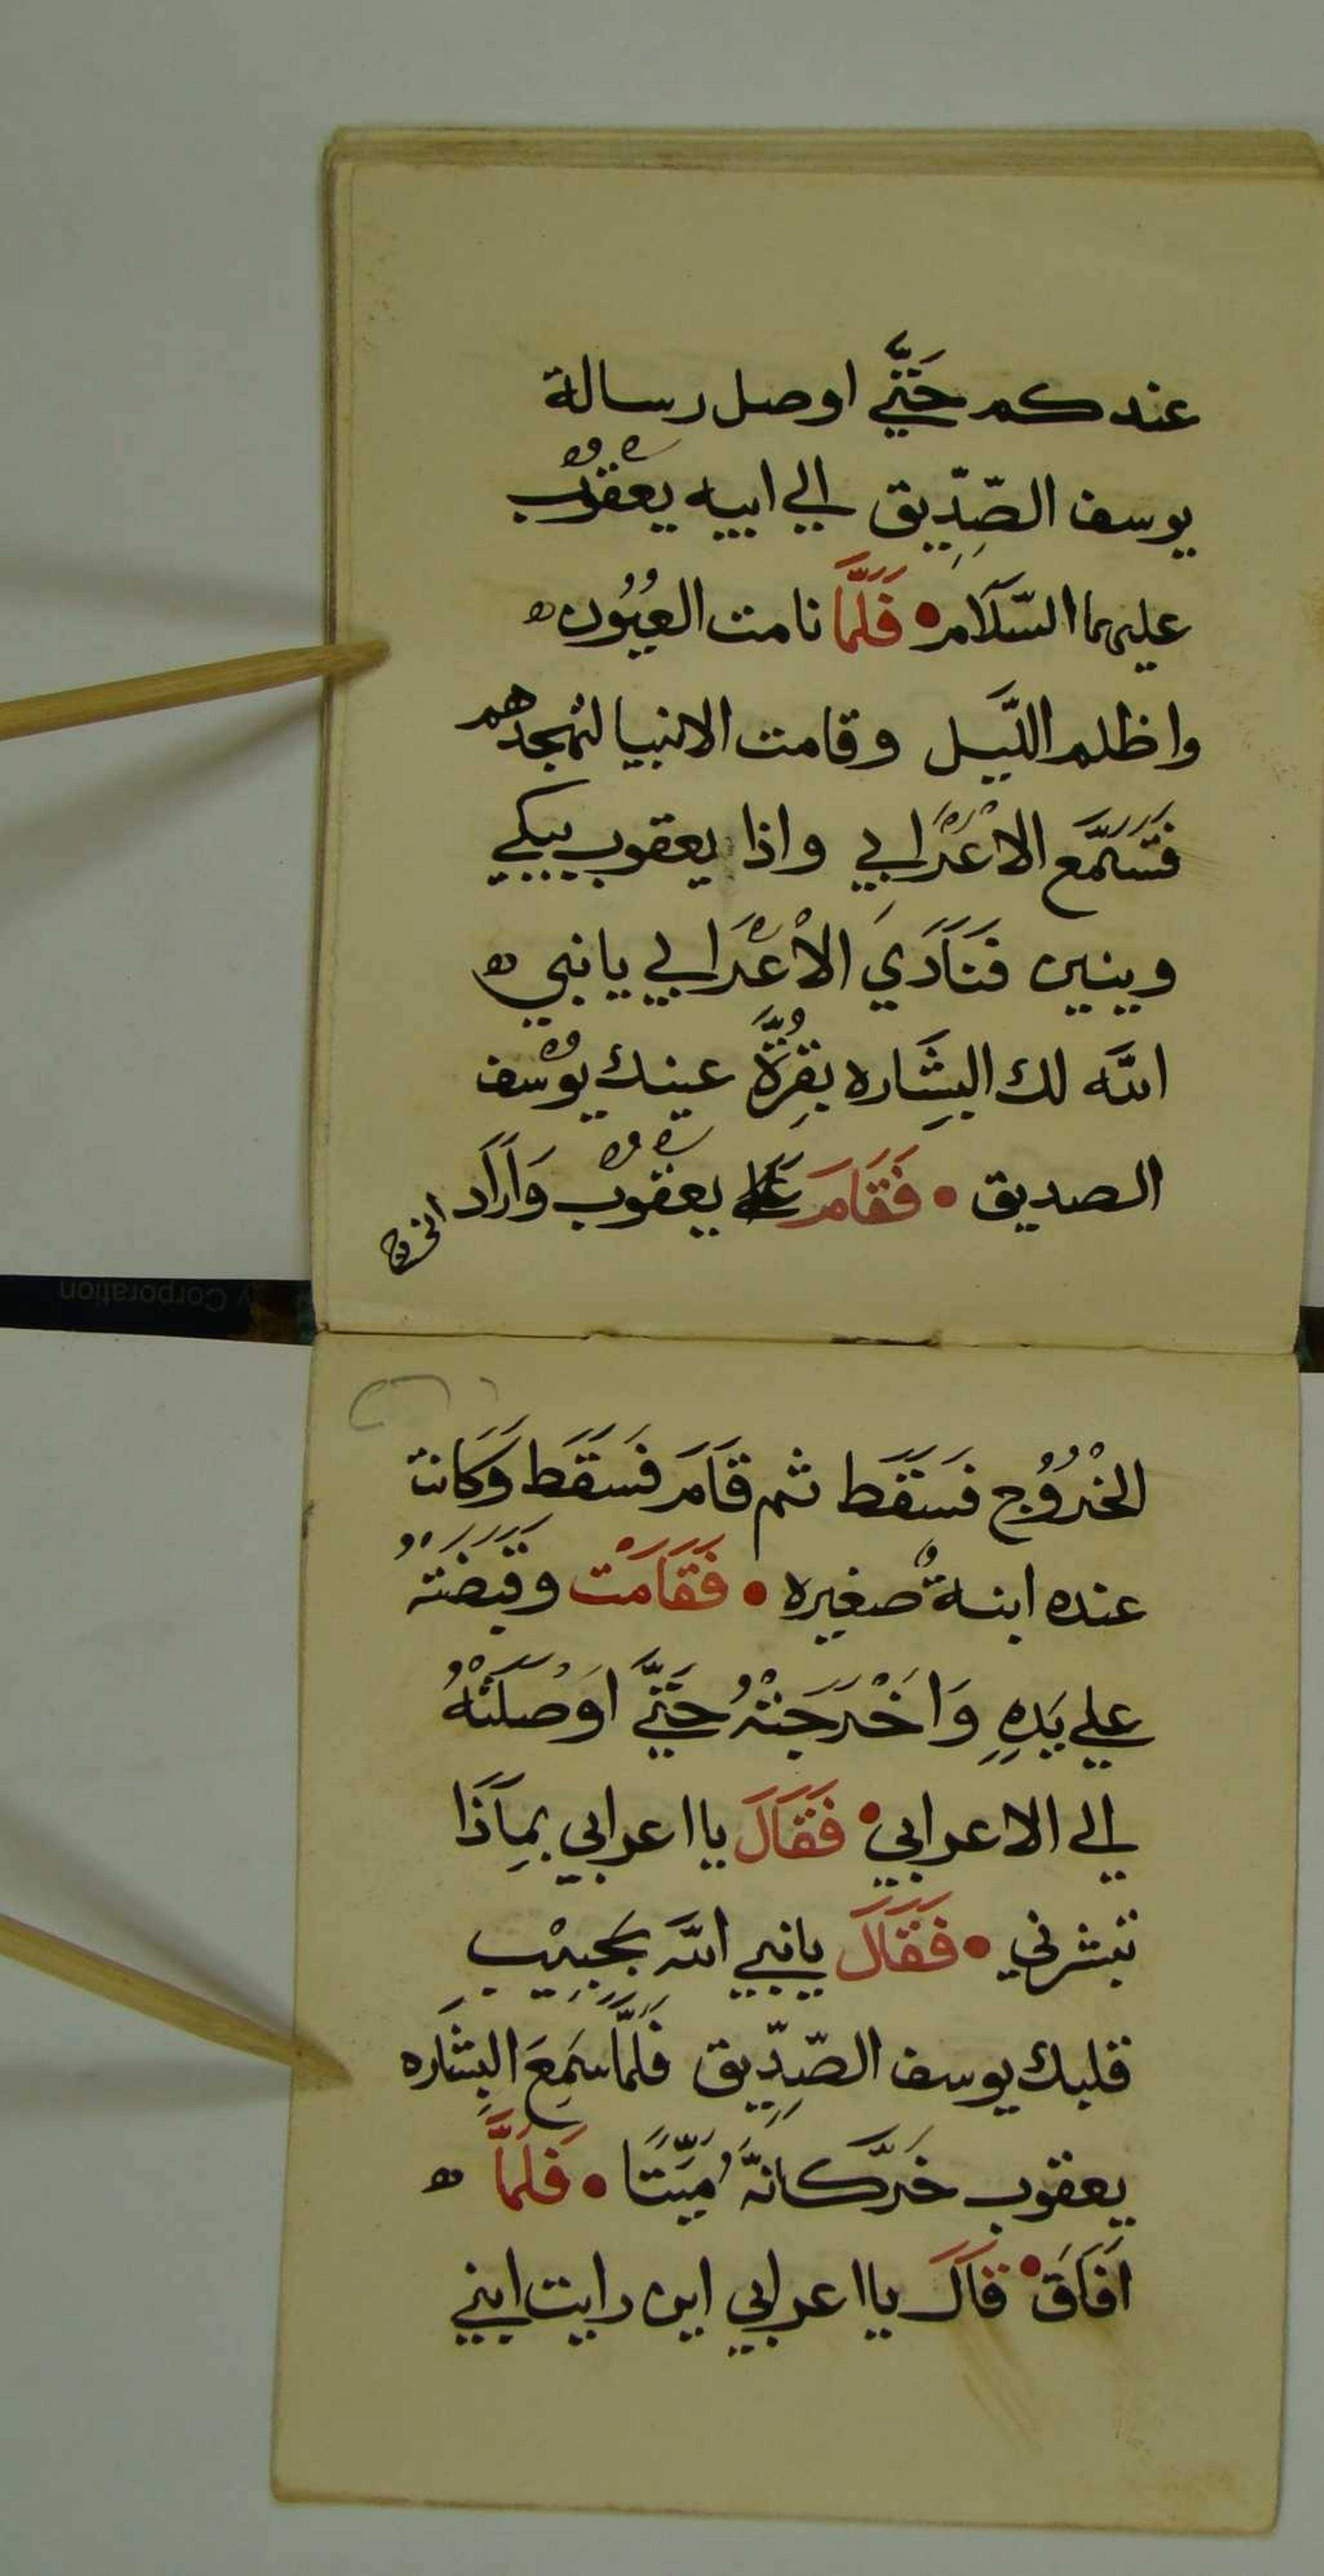 عندكم حَتَّي اوصل رسالة
يوسف الصِّدِّيق الي ابيه يعْقُوْب
عليهما السَّلَام • فَلَمَّا نامت العُيُون ه
واظلم اللَّيل وقامت الانبيا لتهجدهم
فَتَسَمَّعَ الاعْرَابي واذا يعقوب يبكي
وينين فَنَادَي الاْعْرَابي يانبي ه
اللَّه لك البِشَاره بِقُرَّة عينك يوْسُف
الصديق • فَقَامَ يعْقُوْب وَاَرَاد
الخروج
الخْرُوُج فَسَقَط ثم قَامَ فَسَقَط وَكَانت
عنده ابنةٌ صغيره • فَقَامَتْ وقَبَضَتَهُ
علي يَدِهِ وَاَخْرَجَتْهُ حَتَّي اَوْصَلَتْهُ
الي الاعرابي • فَقَالَ يااعرابي بِمَاذَا
تبشرني • فَقَالَ يانبي اللَّه بحَبِيْبِ
قلبك يوسف الصِّدِّيق فَلَمَّا سَمِعَ البِشَاره
يعقوب خَرَّ كَانَّهُ مَيِّتًا • فَلَمَّا ه
اَفَاقَ • قَالَ يااعرابي اين رايت ابني
Corporation